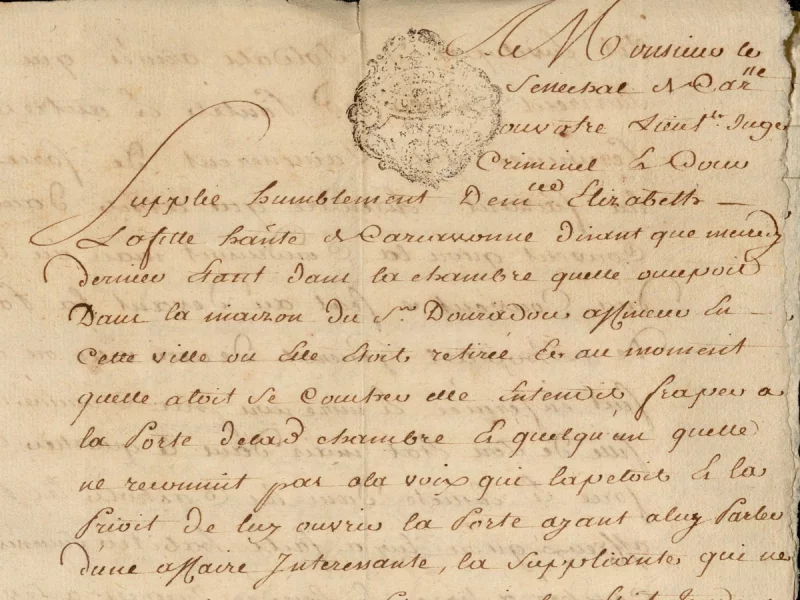 A Monsieur le
Senechal de Carnne
ou vatre Lieutt. Juge
Criminel Et Dour
Supplie humblement Demlle Elizabeth
Lafitte hante de Carcassonne dizant que mercredy
dernier Etant dans la chambre quelle occupoit
Dans la maizon du Sr. Douradou affineur En
Cette ville ou Elle Etoit retirée Et au moment
quelle aloit se Coucher elle Entendit fraper a
la Porte de lad chambre Et quelqu'un quelle
ne reconnut pas a la voix qui lapeloit Et la
Prioit de luy ouvrir la Porte ayant a luy Parler
dune affaire Interessante, la Suppliante qui ne